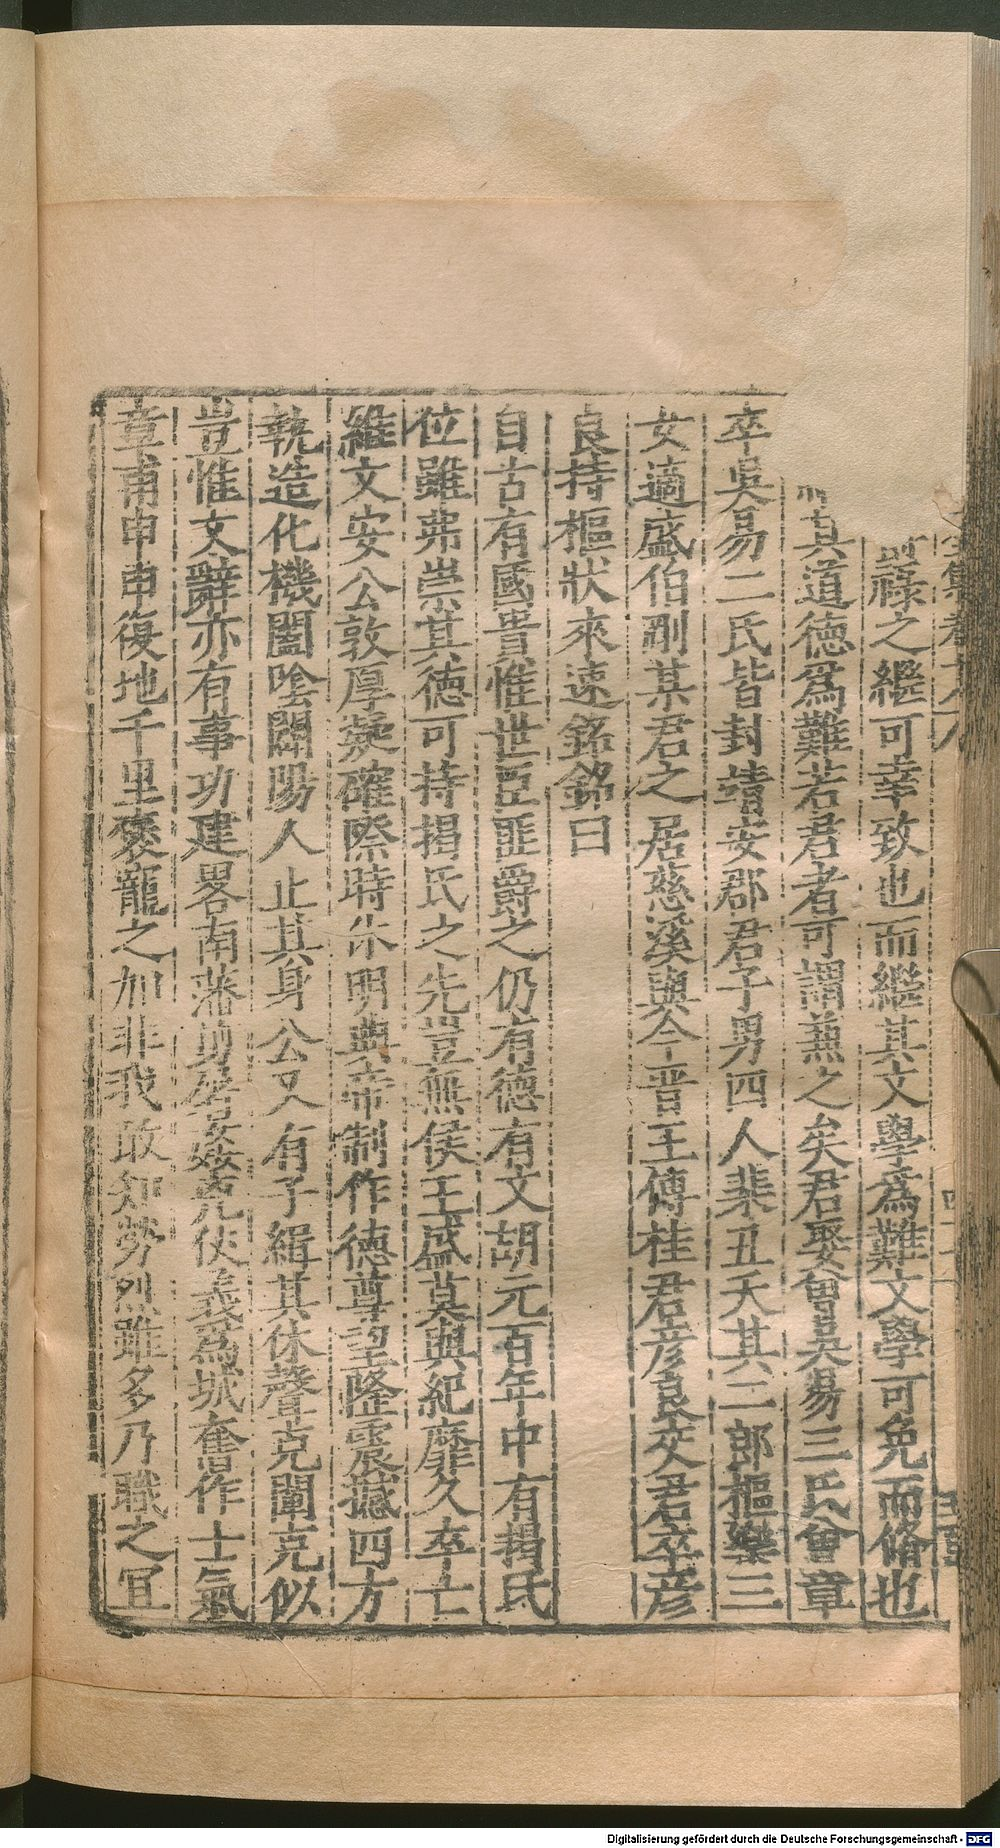 祿之繼可幸致也而繼其文學爲難文學可免而脩也
其道德爲難若君者可謂兼之矣君娶曾吳易三氏曾章
卒吳易二氏皆封靖安郡君子男四人棐丑夭其二郎樞樂三
女適盛伯剛某君之居慈溪與今晋王傅桂君彦良交君卒彦
良持樞狀來速銘銘曰
自古有國晋惟世臣匪爵之仍有德有文胡元百年中有揭氏
位雖弗崇其德可持揭氏之先豈無侯王盛莫與紀靡久卒亡
維文安公敦厚凝確際時休明典帝制作德尊望隆震撼四方
執造化機闔陰闢陽人止其身公又有子緝其休聲克闡克似
豈惟文辭亦有事功建畧南藩剪奸克俠義爲城奮作士氣
章甫申申復地千里褒寵之加非我敢知勞烈雖多乃職之宜
Digitalisierung gefördert durch die Deutsche Forschungsgemeinschaft - DFG